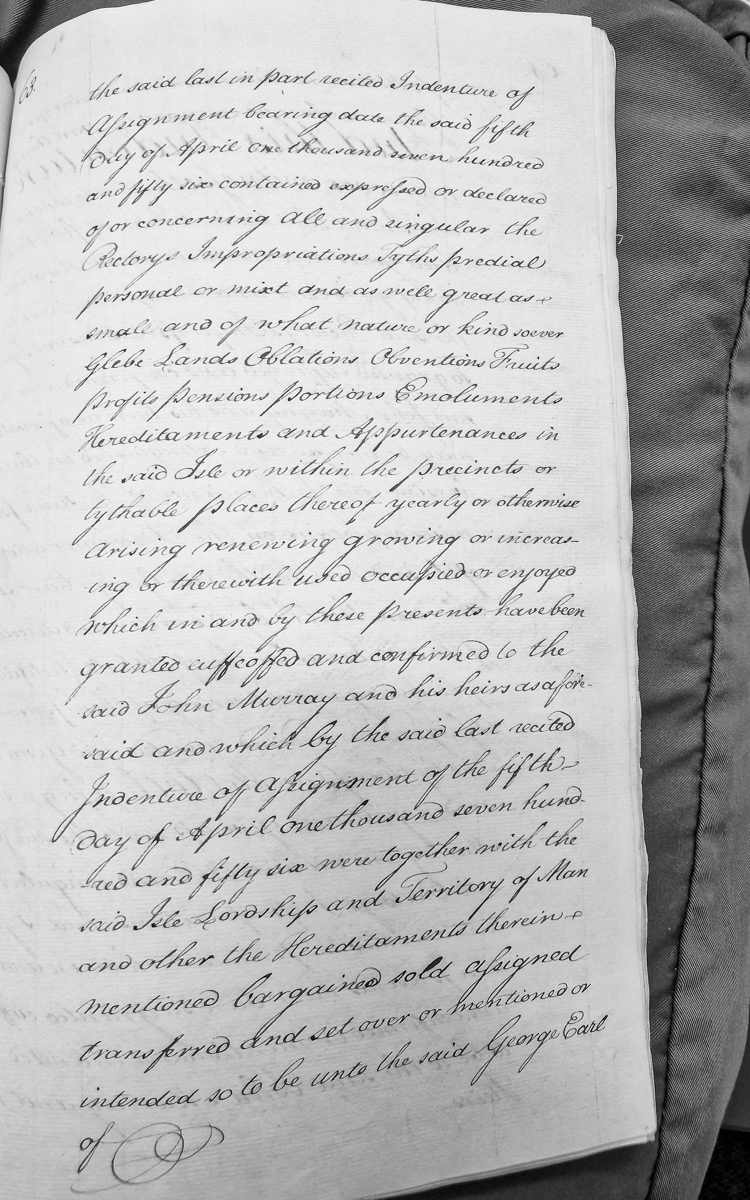 63.
the said last in part recited Indenture of
Assignment bearing date the said fifth
Day of April one thousand seven hundred
and fifty six contained expressed or declared
of or concerning all and singular the
Rectorys Impropriations Tyths predial
personal or mixt and as well great as
small and of what nature or kind soever
Glebe Lands Oblations Obventions Fruits
profits pensions portions Emoluments
Hereditaments and Appurtenances in
the said Isle or within the precincts or
tythable places thereof yearly or otherwise
arising renewing growing or increas-
ing or therewith used occupied or enjoyed
which in and by these presents have been
granted enffeoffed and confirmed to the
said John Murray and his heirs as afore-
said and which by the said last recited
Indenture of Assignment of the fifth
Day of April one thousand seven hund-
red and fifty six were together with the
said Isle Lordship and Territory of Man
and other the Hereditaments therein
mentioned bargained sold assigned
transferred and set over or mentioned or
intended so to be unto the said George Earl
of